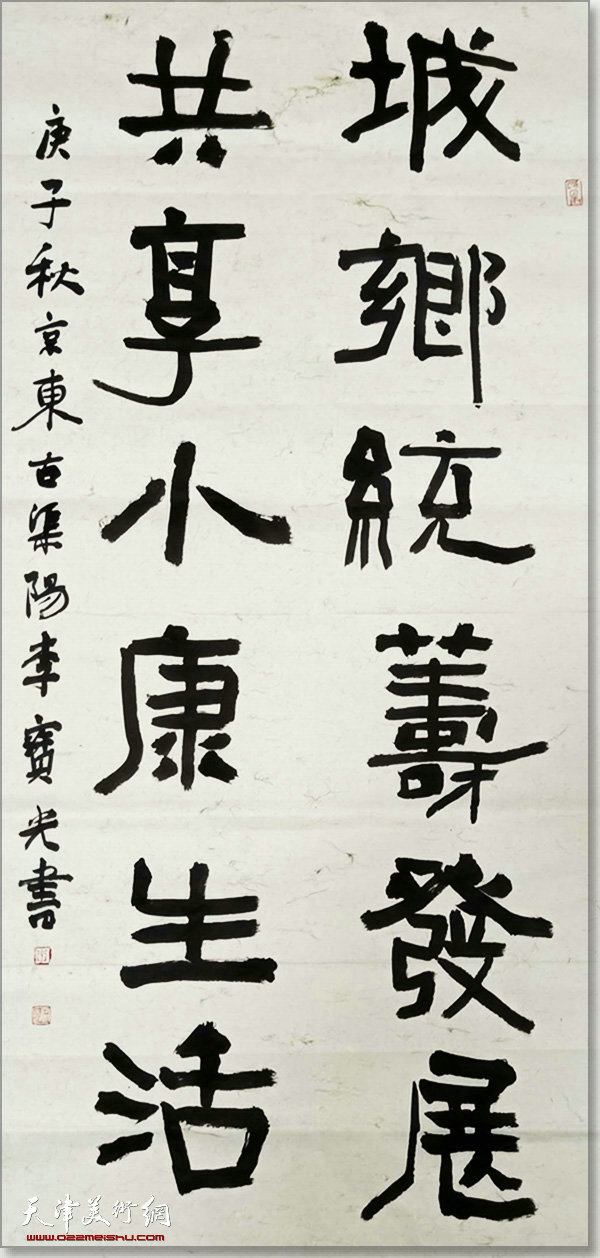 城鄉統籌發展
共享小康生活
庚子秋京東古渠陽李寶光書
天津美術網
www.022meishu.com